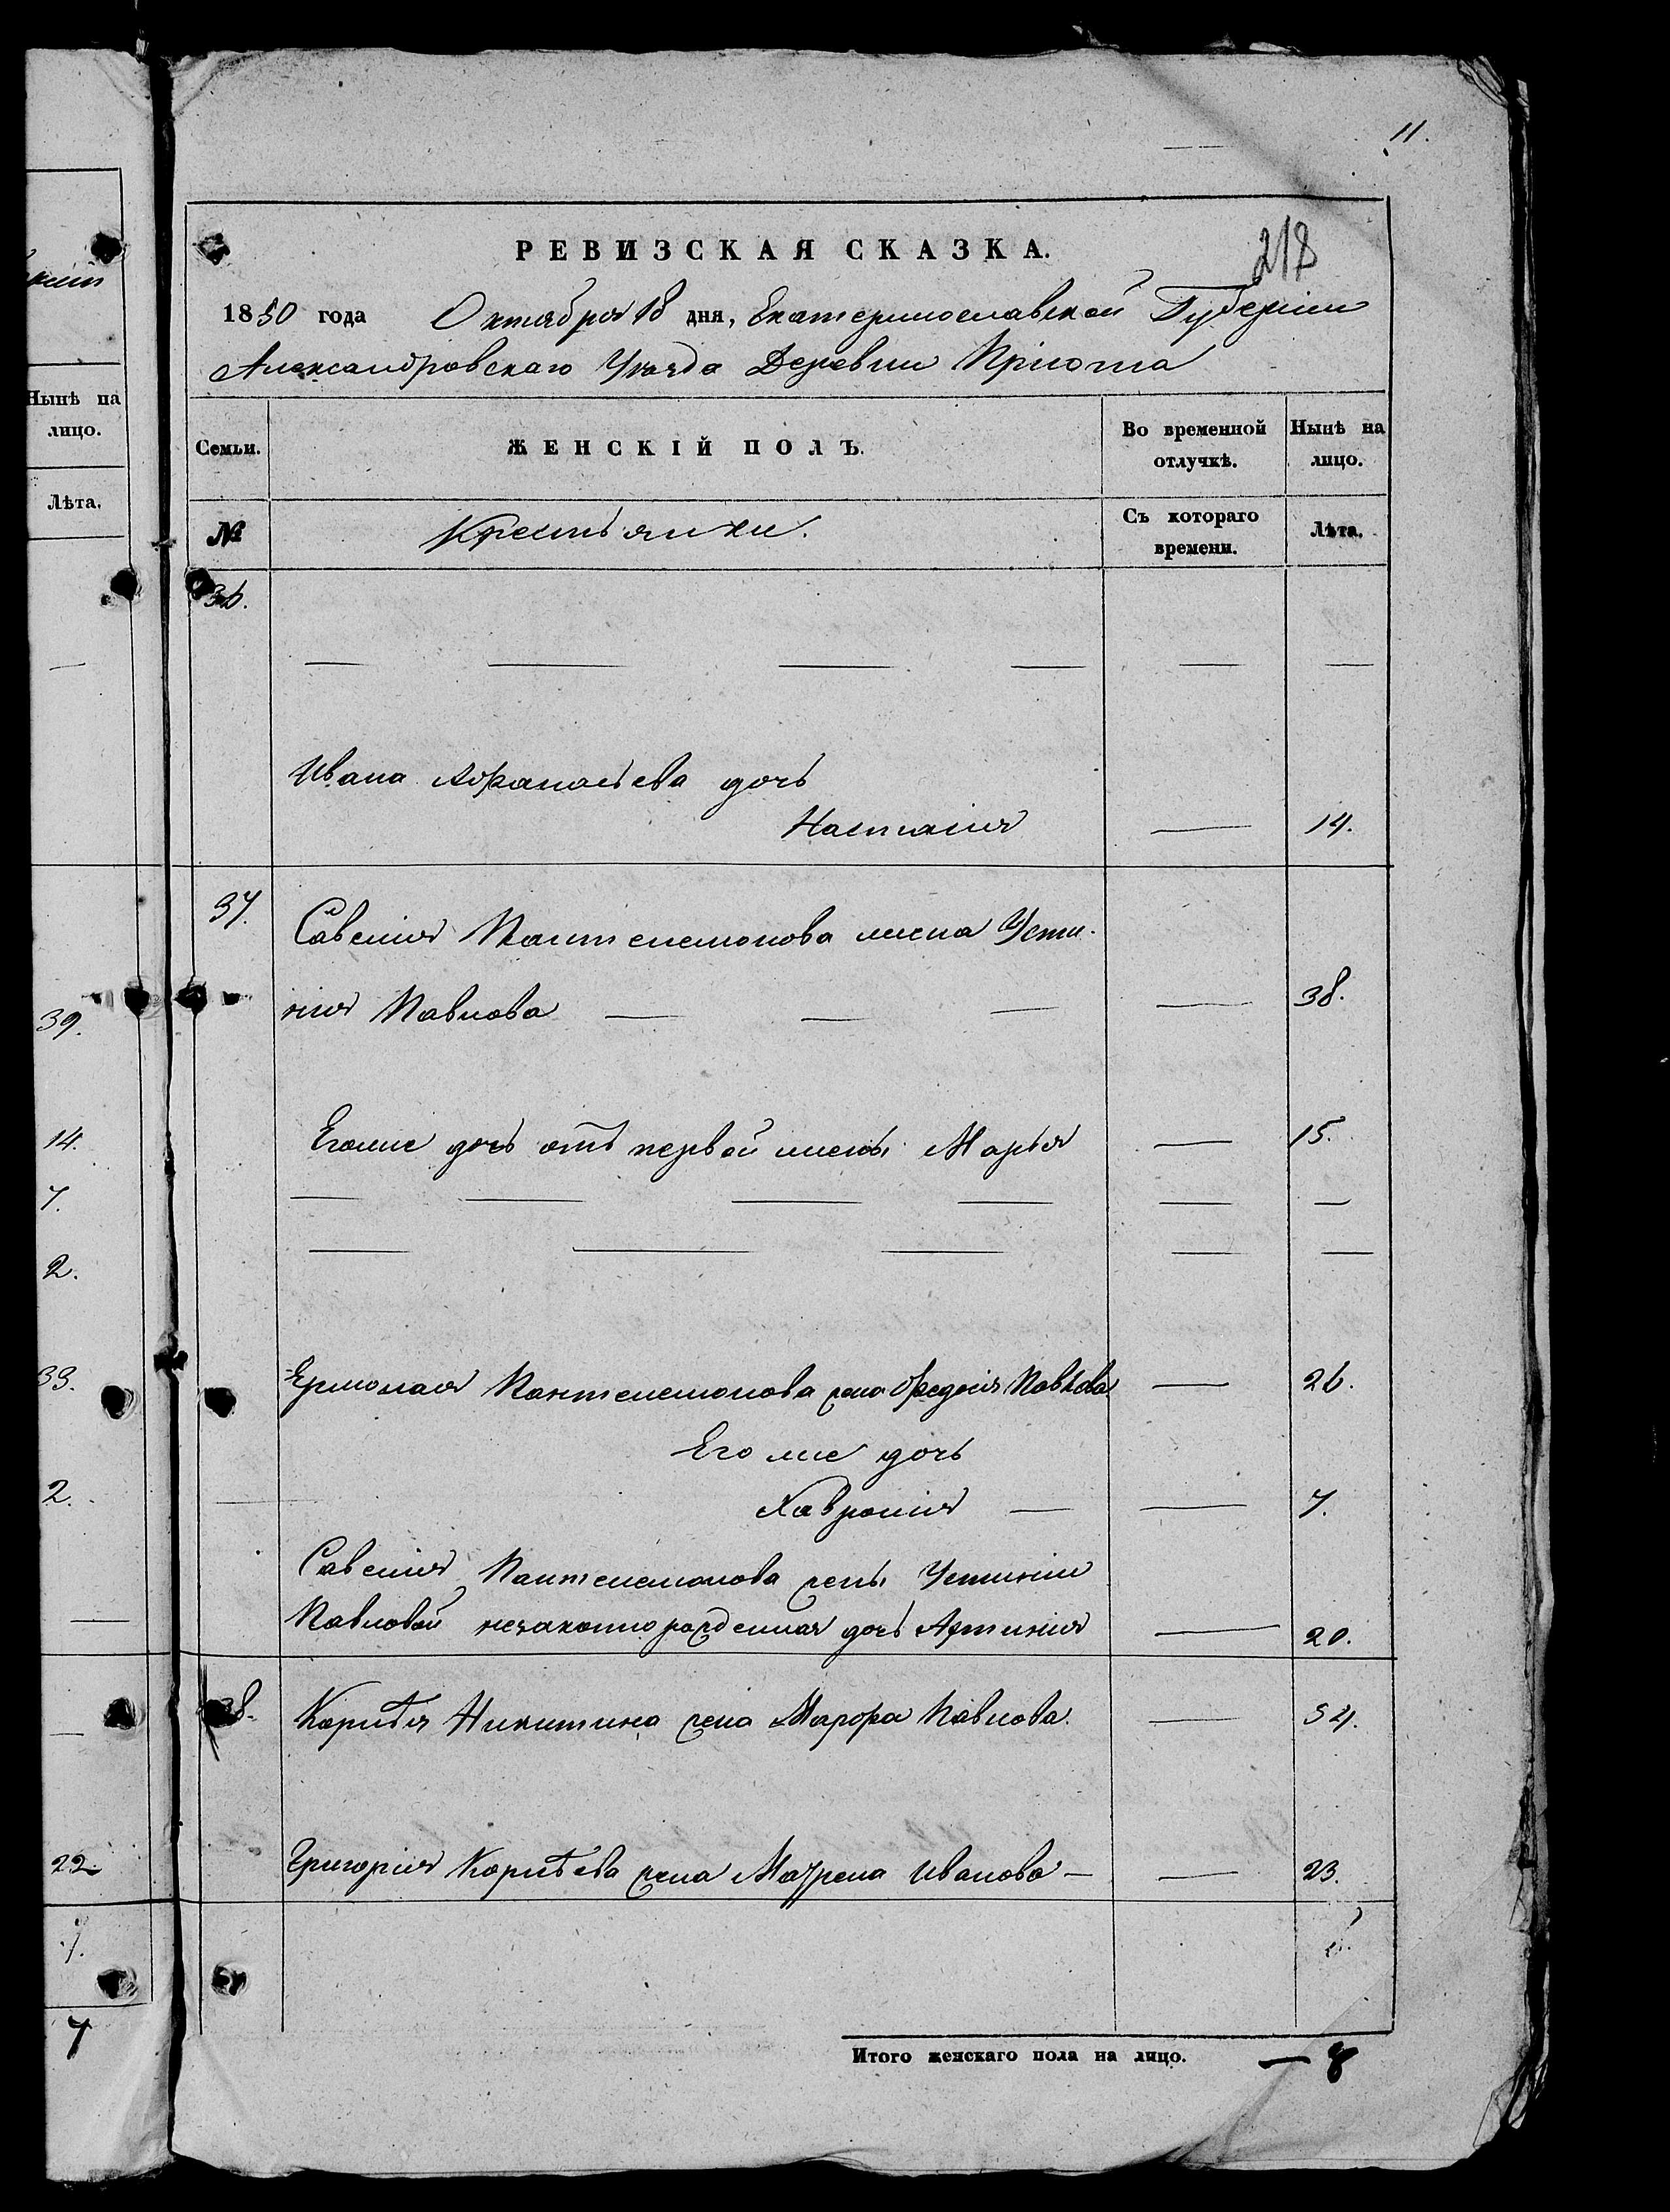 11.
218
РЕВИЗСКАЯ СКАЗКА.
1850 года Октября 18 дня, Екатеринославской Губерніи
Александровскаго Уѣзда Деревни Пріюта
Нынѣ на
лицо.
Лѣта.
39.
14.
7.
2.
33.
2.
22.
7.
7
Семьи.
ЖЕНСКІЙ ПОЛЪ.
Во временной
отлучкѣ.
Нынѣ на
лицо.
№
Крестьянки.
Съ котораго
времени.
Лѣта.
36.
Ивана Афанасьева дочь
Настасія — 14.
37.
Савелія Пантелемонова жена Усти-
нія Павлова — — — — 38.
Егоже дочь отъ первой жены Марья — 15.
Ермолая Пантелемонова жена Федосія Павлова — 26.
Его же дочь
Хавронія — — 7.
Савелія Пантелемонова жены Устиніи
Павловой незаконнорожденная дочь — 20.
38.
Корнѣя Никитина жена Марфа Павлова. — 54.
Григорія Корнѣева жена Матрена Иванова — — 23.
Итого женскаго пола на лицо. — 8